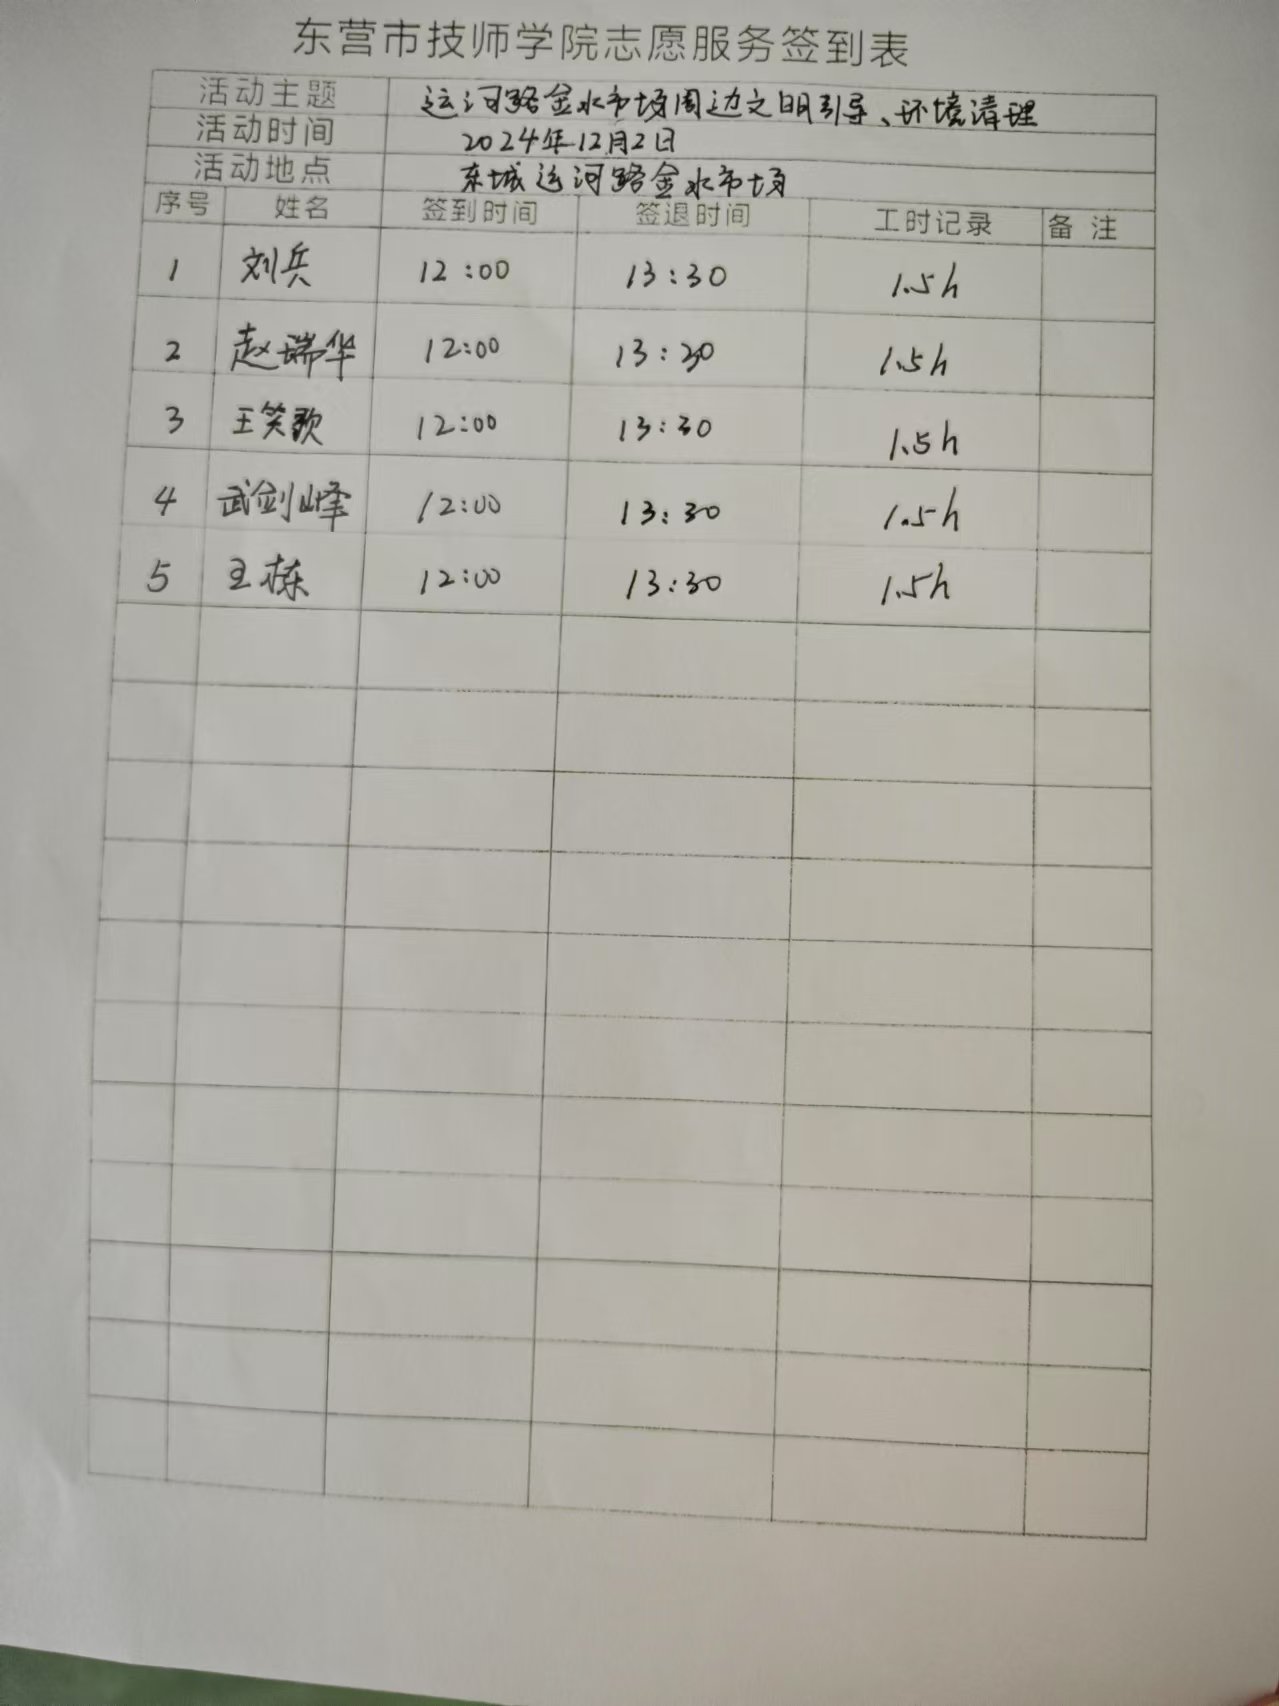 东营市技师学院志愿服务签到表
活动主题 运河路金水市场周边文明引导、环境清理
活动时间 2024年12月2日
活动地点 东城运河路金水市场
序号 姓名 签到时间 签退时间 工时记录 备注
1 刘兵 12:00 13:30 1.5h
2 赵瑞华 12:00 13:30 1.5h
3 王笑歌 12:00 13:30 1.5h
4 武剑峰 12:00 13:30 1.5h
5 王栋 12:00 13:30 1.5h